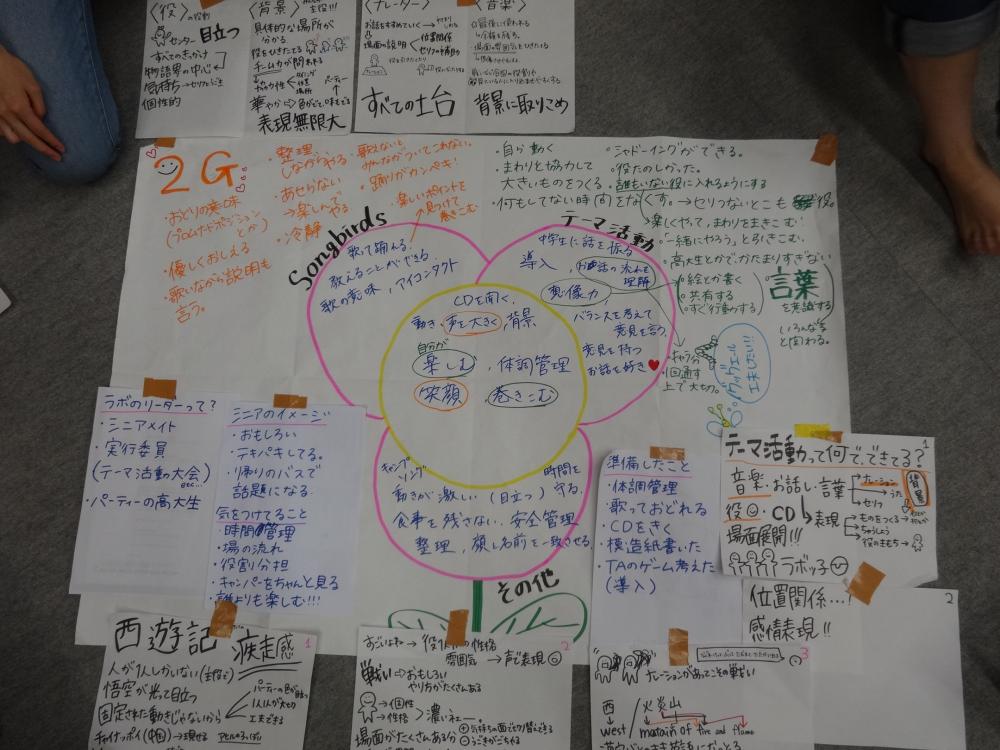 〈役〉の役割
センター 目立つ
すべてのきっかけ
物語界の中心
気持ち→セリフといっしょ
個性的
〈背景〉
主役!!
具体的な場所が
分かる
役をひきたてる
チーム力が問われる
表現無限大
〈ナレーター〉
お話をすすめていく
場面の説明
位置関係
すべての土台
〈音楽〉
背景に取りこめ
2G
・おどりの意味
(プロムナードポジション
とか)
・優しくおしえる
・歌いながら説明も
言う。
・整理
しながらやる
・あせらない
→楽しんで
やる
・冷静
・歌えないと
みんながついてこれない。
・踊りカンペキ!
・楽しいポイントを
見つけて
Songbirds
歌って踊れる
教えることができる
歌の意味,アイコンタクト
・自ら動く
・まわりと協力して
大きいものをつくる
・何もしてない時間をなくす。
・シャドーイングができる。
・役たのしかった。
・誰もいない役に入れるようにする
→セリフないとこも役。
→楽しくやって,まわりをまきこむ
・「一緒にやろう」と引きこむ
・高大生とかでかたまりすぎない
絵とか書く
共有する
すぐ行動する
言葉
を意識する
いろんな子
と関わる。
テーマ活動
中学生に話を振る
導入,お話の流れを
理解
想像力
バランスを考えて
意見を言う
意見を持つ
お話を好き
・キャラ分
1回通す
上で大切。
グッヴェール
工夫したい!!
CDを聞く,
動き,声を大きく,背景
自分が
楽しむ,体調管理
笑顔,巻きこむ
キャンプ
ソング
時間を
守る
動きが激しい(目立つ)
食事を残さない,安全管理
整理,顔と名前を一致させる
その他
ラボのリーダーって?
・シニアメイト
・実行委員
(テーマ活動大会)
etc...
・パーティーの高大生
シニアのイメージ
・おもしろい
・テキパキしてる。
・帰りのバスで
話題になる
気をつけてること
・時間管理
・場の流れ
・役割分担
・キャンパーをちゃんと見る
・誰よりも楽しむ!!!
準備したこと
・体調管理
・歌っておどれる
・CDをきく
・模造紙書いた
・TAのゲーム考えた
(導入)
1
テーマ活動って何で,できてる?
音楽・お話し・言葉
ナレーション
うた
セリフ
背景
役・CD
表現
ものをつくる
役のきもち
場面展開!!!
ラボッ子
2
位置関係...!
感情表現!!
西遊記 疾走感
1
人が1人しかいない(主役で)
悟空が光って目立つ
固定された動きじゃないから
チャイナっぽい(中国)→現せる
パーティーの色が出る
1人1人が大切
工夫できる
2
雰囲気→声で表現
戦い→おもしろい
やり方がたくさんある
→個性
→性格
濃いネェー。
場面がたくさんある分
3
ナレーションがあってこその戦い
西
west
火炎山
fire and flame